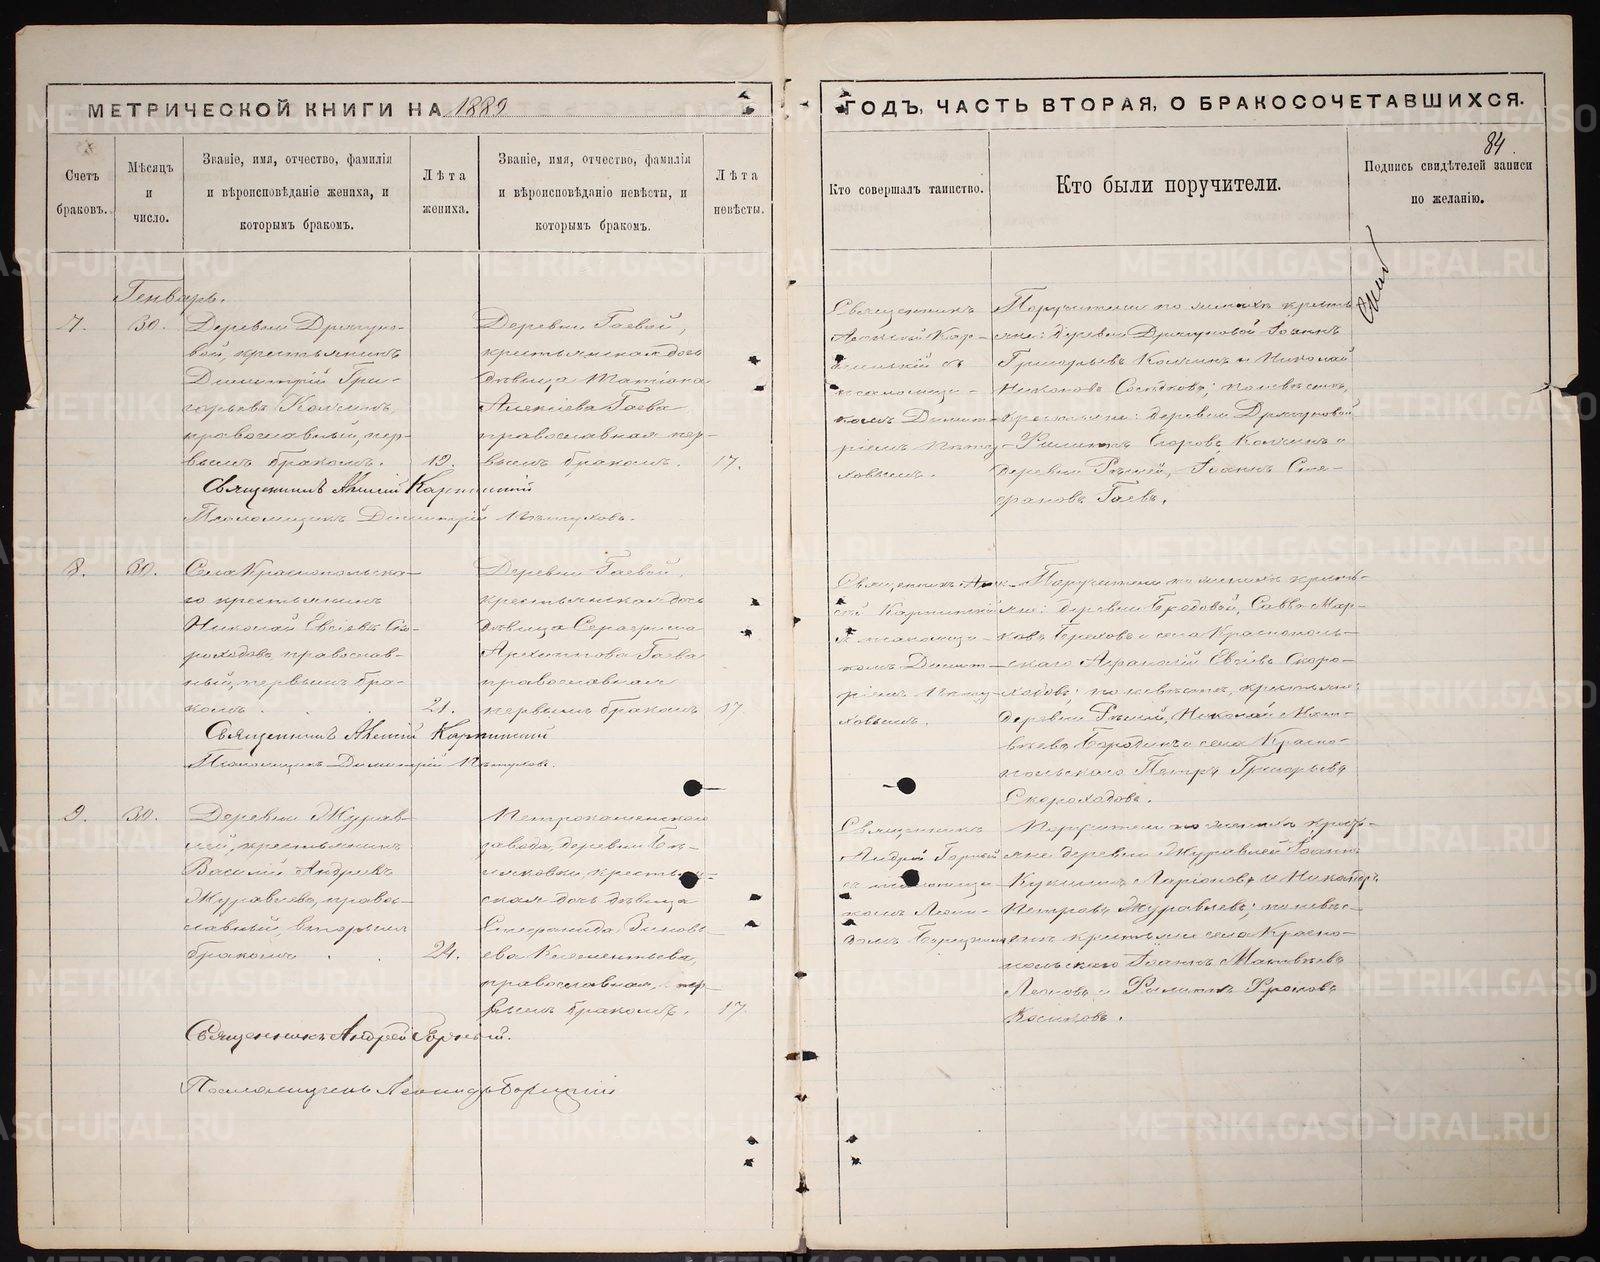 МЕТРИЧЕСКОЙ КНИГИ НА 1889
ГОДЪ, ЧАСТЬ ВТОРАЯ, О БРАКОСОЧЕТАВШИХСЯ.
84.
Счетъ браковъ.
Мѣсяцъ и число.
Званіе, имя, отчество, фамилія
и вѣроисповѣданіе жениха, и
которымъ бракомъ.
Лѣта жениха.
Званіе, имя, отчество, фамилія
и вѣроисповѣданіе невѣсты, и
которымъ бракомъ.
Лѣта невѣсты.
Кто совершалъ таинство.
Кто были поручители.
Подпись свидѣтелей записи
по желанію.
Генварь.
7.
30.
Деревни
вой, крестьянинъ
Димитрій Гри-
горьевъ Колчинъ,
православный, пер-
вымъ бракомъ.
19.
Деревни Гаевой,
крестьянская дочь
дѣвица Татіана
Алексіева Гаева
православная пер-
вымъ бракомъ.
17.
Священникъ
Алексій Кар-
пинскій съ
псаломщи-
комъ Димит-
ріемъ Пѣту-
ховымъ.
Поручители по женихѣ крестья-
яне: деревни Іоаннъ
Григорьевъ Колчинъ и Николай
по невѣстѣ,
крестьяне: деревни
Филиппъ Егоровъ Колчинъ и
деревни Іоаннъ Сте-
фановъ Гаевъ.
Священникъ Алексій Карпинскій
Псаломщикъ Димитрій Пѣтуховъ.
8.
30.
Села Краснопольска-
го крестьянинъ
Николай Евсіевъ Ско-
роходовъ, православ-
ный, первымъ бра-
комъ
21.
Деревни Гаевой,
крестьянская дочь
дѣвица Серафима
Архиппова Гаева
православная
первымъ бракомъ
17
Священникъ Алек-
сій Карпинскій
съ псаломщи-
комъ Димит-
ріемъ Пѣту-
ховымъ.
Поручители по женихѣ крестья-
яне: деревни Бродовой, Савва Мар-
ковъ и села Краснополь-
скаго Афанасій Евсіевъ Скоро-
ходовъ; по невѣстѣ, крестьяне:
деревни Николай Мат-
вѣевъ Бородинъ и села Красно-
польскаго Петръ Григорьевъ
Скороходовъ.
Священникъ Алексій Карпинскій
Псаломщикъ Димитрій Пѣтуховъ.
9.
30.
Деревни Журав-
лей, крестьянинъ
Василій Андреевъ
Журавлевъ, правос-
лавный, вторымъ
бракомъ
24.
Петрокаменскаго
завода, деревни Бѣ-
ляковки, крестьян-
ская дочь дѣвица
ева Клементьева,
православная, пер-
вымъ бракомъ.
17.
Священникъ
Андрей Горный
съ псаломщи-
комъ Леони-
домъ
Поручители по женихѣ крестья-
яне деревни Журавлей Іоаннъ
Ларіоновъ и Никаноръ
Петровъ Журавлевъ; по невѣс-
тѣ крестьяне села Красно-
польскаго Іоаннъ Матвѣевъ
Леоновъ и Филиппъ Фроловъ
Священникъ Андрей Горный.
Псаломщикъ Леонидъ